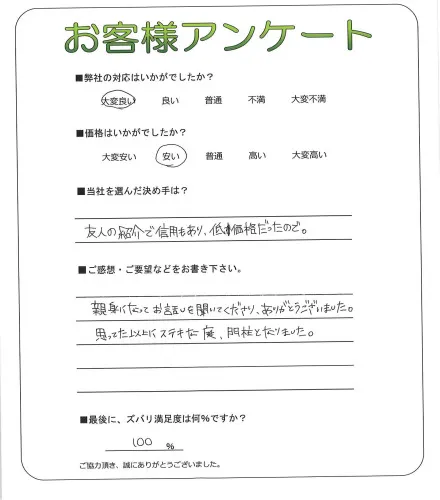 お客様アンケート
■弊社の対応はいかがでしたか？
大変良い 良い 普通 不満 大変不満
■価格はいかがでしたか？
大変安い 安い 普通 高い 大変高い
■当社を選んだ決め手は？
友人の紹介で信用もあり、低価格だったので。
■ご感想・ご要望などをお書き下さい。
親身になってお話しを聞いてくださり、ありがとうございました。
思ってた以上にステキな庭、門柱となりました。
■最後に、ズバリ満足度は何％ですか？
100 ％
ご協力頂き、誠にありがとうございました。